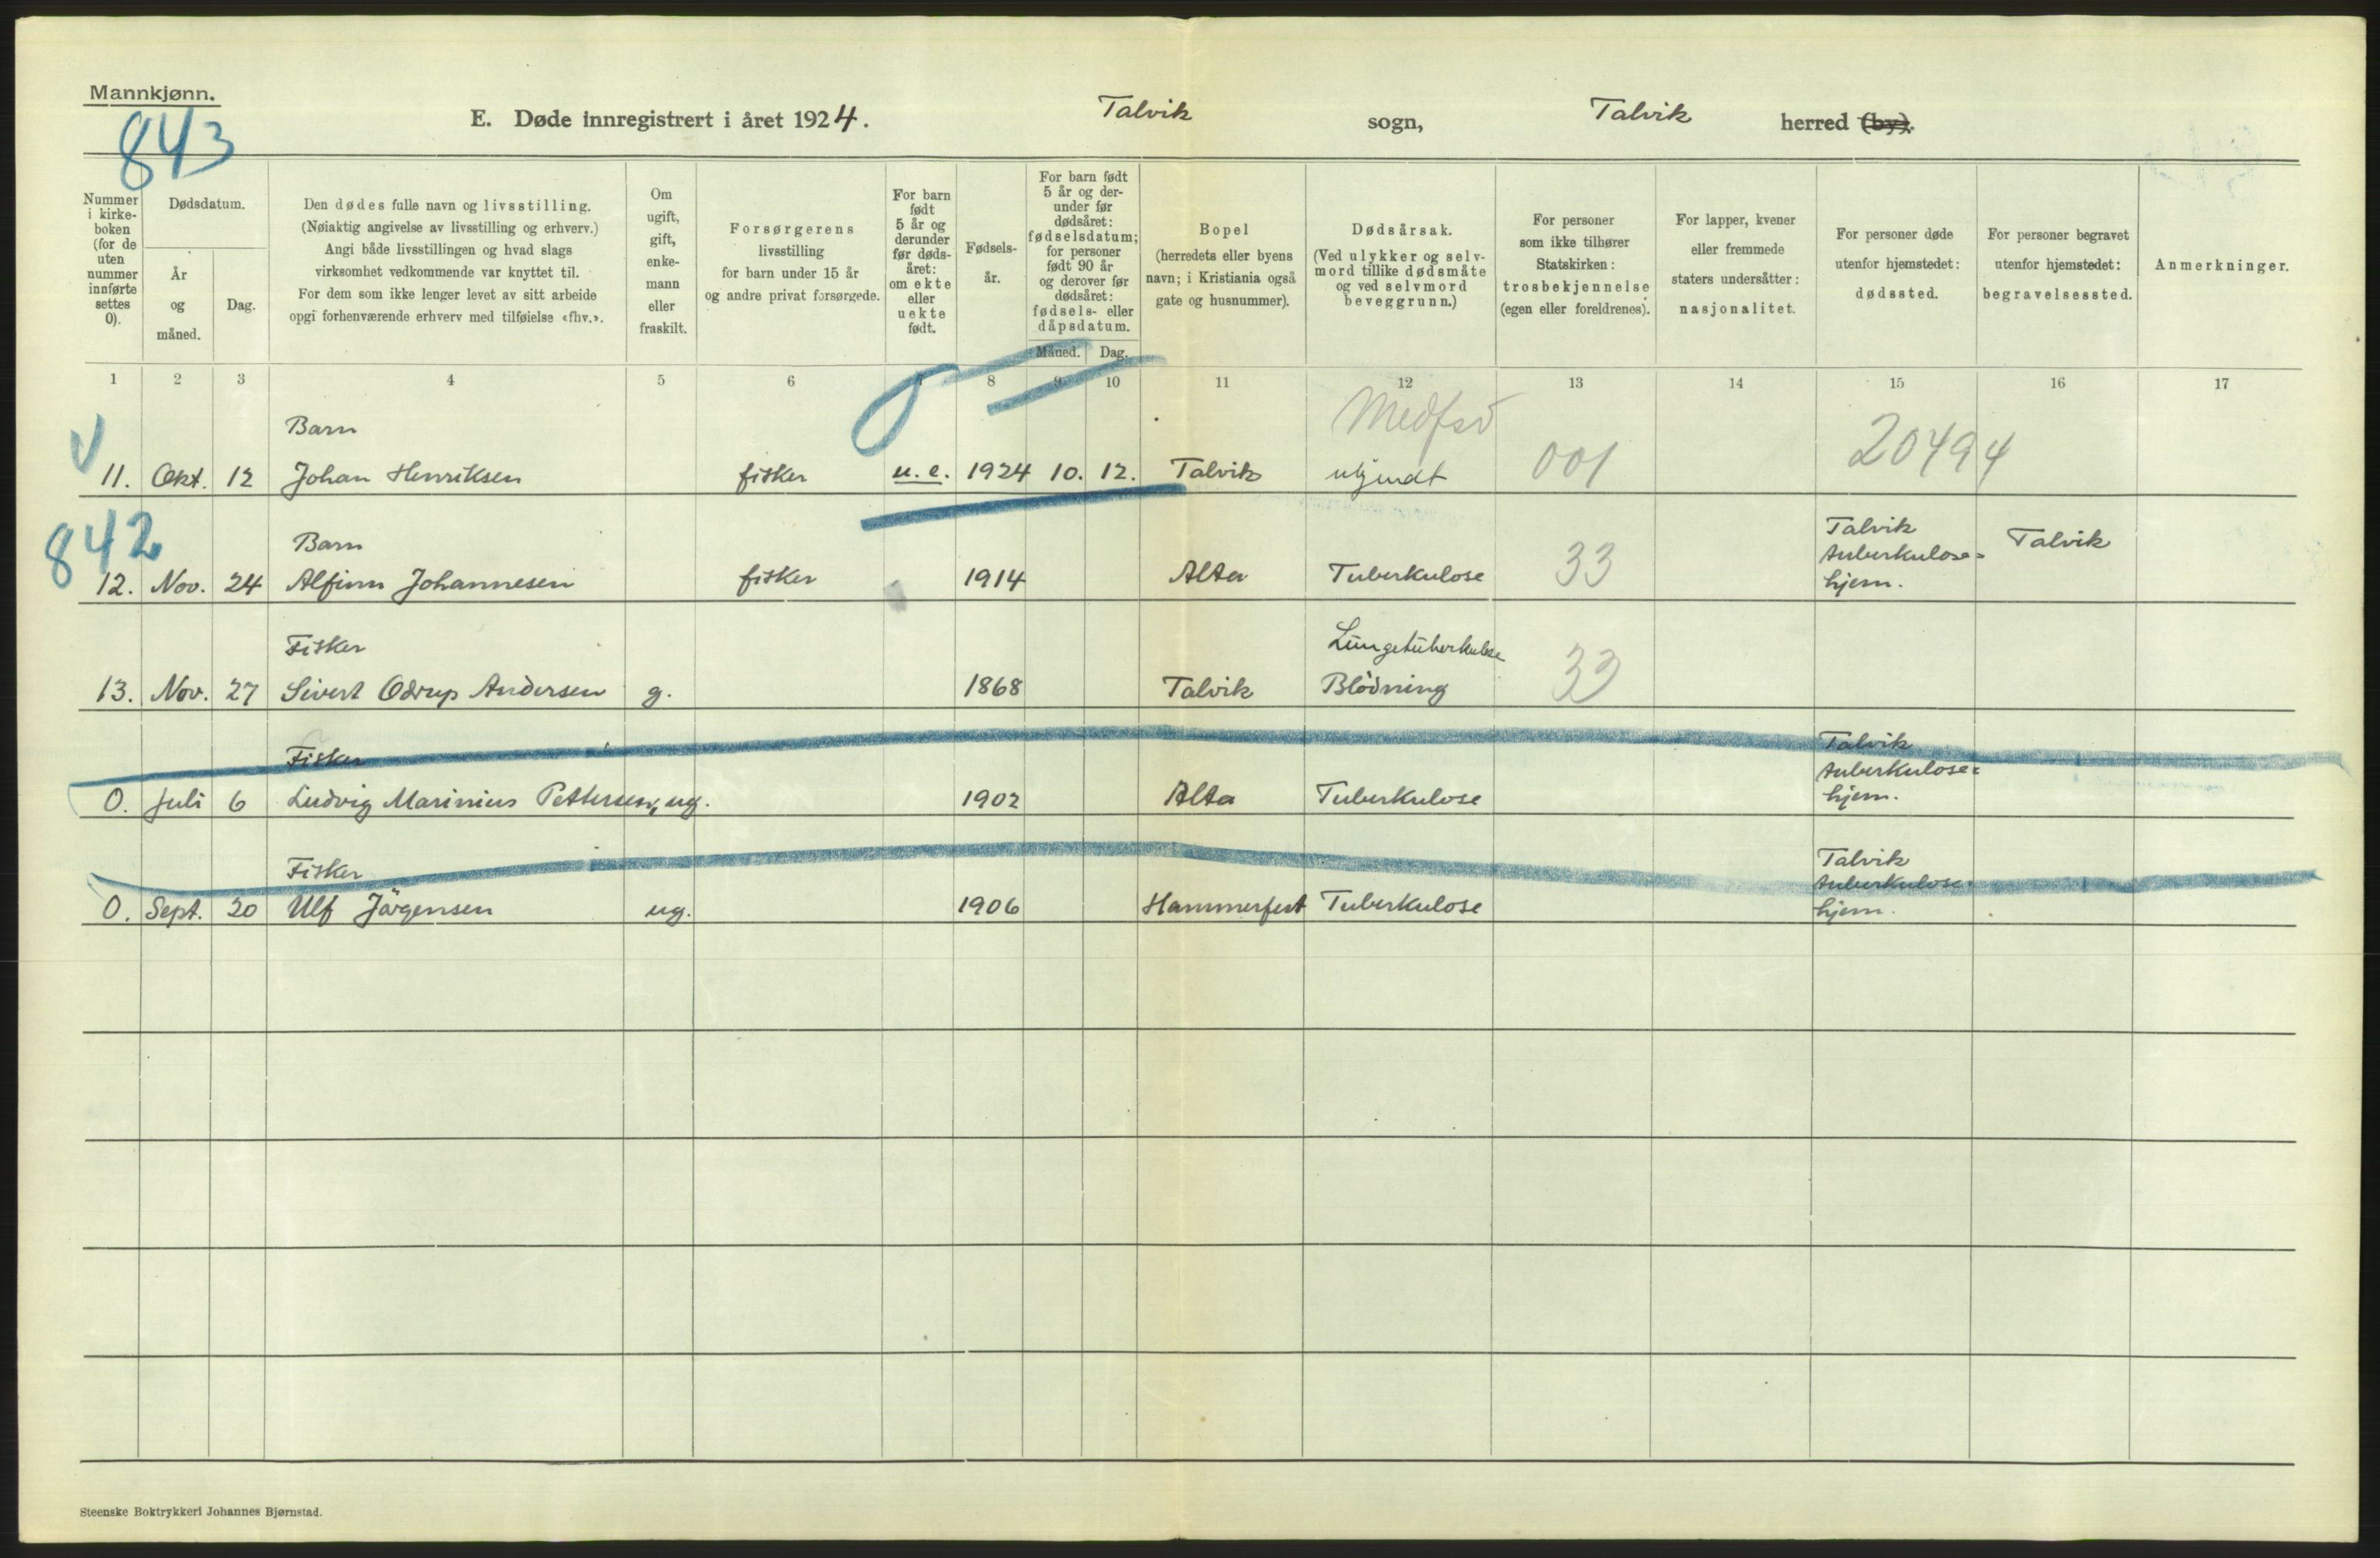 Mannkjønn.
843
E. Døde innregistrert i året 1924. Talvik sogn, Talvik herred (by).
Nummer i kirke- boken (for de uten nummer innførte settes 0).
Dødsdatum.
År og måned.
Dag.
Den dødes fulle navn og livsstilling.
(Nøiaktig angivelse av livsstilling og erhverv.)
Angi både livsstillingen og hvad slags
virksomhet vedkommende var knyttet til.
For dem som ikke lenger levet av sitt arbeide
opgi forhenværende erhverv med tilføielse «fhv.».
Om ugift, gift, enke- mann eller fraskilt.
Forsørgerens
livsstilling
for barn under 15 år
og andre privat forsørgede.
For barn født 5 år og derunder før døds- året: om ekte eller uekte født.
Fødsels- år.
For barn født 5 år og der- under før dødsåret: fødselsdatum; for personer født 90 år og derover før dødsåret: fødsels- eller dåpsdatum.
Måned. Dag.
Bopel
(herredets eller byens
navn; i Kristiania også
gate og husnummer).
Dødsårsak.
(Ved ulykker og selv-
mord tillike dødsmåte
og ved selvmord
beveggrunn.)
For personer
som ikke tilhører
Statskirken:
trosbekjennelse
(egen eller foreldrenes).
For lapper, kvener
eller fremmede
staters undersåtter:
nasjonalitet.
For personer døde
utenfor hjemstedet:
dødssted.
For personer begravet
utenfor hjemstedet:
begravelsessted.
Anmerkninger.
1 2 3 4 5 6 7 8 9 10 11 12 13 14 15 16 17
Barn Medfød
11. Okt. 12 Johan Henriksen fisker u. e. 1924 10. 12. Talvik ukjendt 001 20494
842
Barn Talvik
tuberkulose=
12. Nov. 24 Alfinn Johannesen fisker 1914 Alta Tuberkulose 33 hjem. Talvik
Fisker Lungetuberkulose
13. Nov. 27 Sivert Odrup Andersen g. 1868 Talvik Blödning 33
Fisker Talvik
tuberkulose=
0. Juli 6 Ludvig Marinius Pettersen, ug. 1902 Alta Tuberkulose hjem.
Fisker Talvik
tuberkulose=
0. Sept. 20 Ulf Jörgensen ug. 1906 Hammerfest Tuberkulose hjem.
Steenske Boktrykkeri Johannes Bjørnstad.